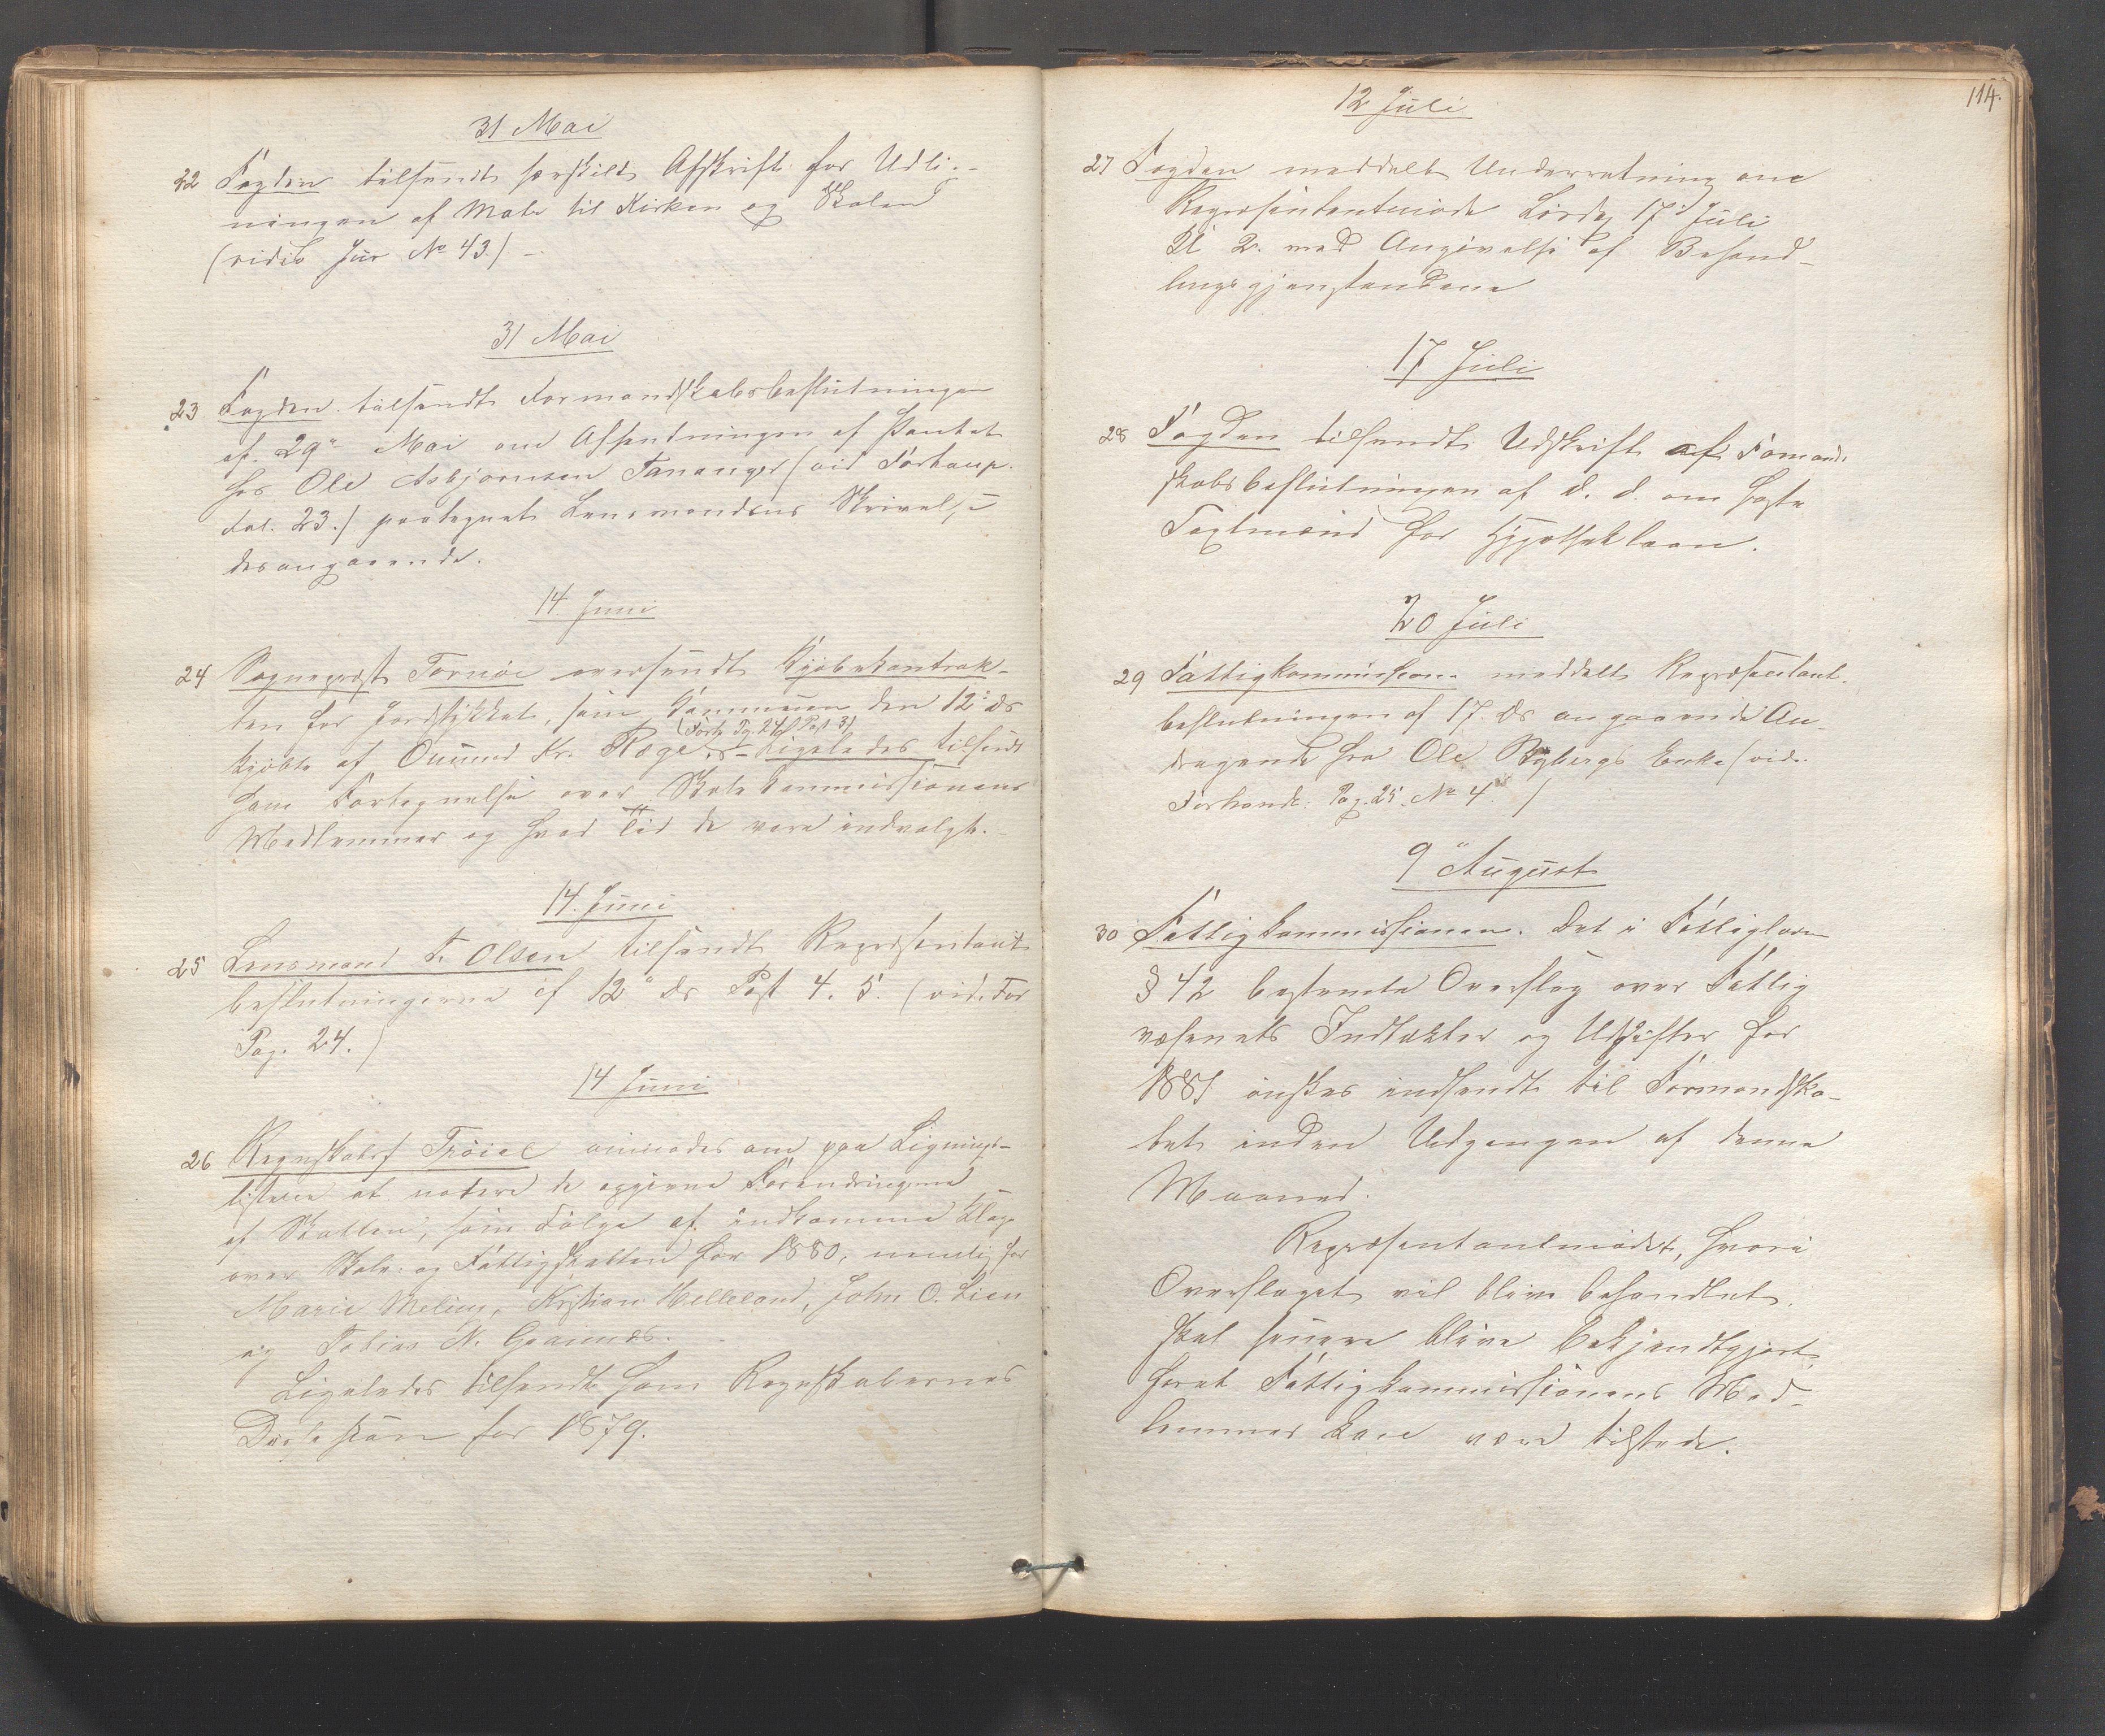 31 Mai
22 Fogden tilsendt særskilt Afskrift for Udlig-
ningen af Mate til Kirken og Skolen
(vides Jur No 43.) -
31 Mai
23 Fogden tilsendt Formandskabsbeslutningen
af 29" Mai om Afhentningen af Pantet
hos Ole Asbjørnsen Tananger (vid Forhand.
Fol. 23.) paategnet Lensmandens Skrivelse
desangaaende.
14 Juni
24 Sognepræst Tornøe oversendt Kjøbekontrak-
ten for Jordstykket, som Kommunen den 12te ds
(Forh. Pg. 24 Post 3)
kjøbte af Ommund Kr. Ræge - Ligeledes tilsendt
ham Fortegnelse over Skolekommissionens
Medlemmer og hvad Tid de vare indvalgte.
14. Juni
25 Lensmand T. Olsen tilsendt Repræsentant
beslutningerne af 12" ds Post 4. 5. (vid. For
Pag. 24.)
14 Juni
26 Regnskabsf Trøiel anmodes om paa Lignings-
listerne at notere de opgivne Forandringerne
af Skatten, som Følge af indkomne Klager
over Skole- og Fattigskatten for 1880, nemlig for
Marie Meling, Kristian Helleland, John O. Lien
og Tobias N. Grannes.
Ligeledes tilsendt ham Regnskabernes
for 1879.
114.
12 Juli
27 Fogden meddelt Underretning om
Repræsentantmøde Lørdag 17de Juli
Kl 2. med Angivelse af Behand-
lingsgjenstandene
17 Juli
28 Fogden tilsendt Udskrift af Formand-
skabsbeslutningen af d. d. om faste
Taxtmænd for Hypotheklaan.
20 Juli
29 Fattigkommissionen meddelt Repræsentant-
beslutningen af 17. ds angaaende An-
dragende fra Ole Rybergs Enke (vide
Forhandl: Pag. 25. No 4.)
9" August
30 Fattigkommissionen. Det i Fattigloven
§ 42 bestemte Overslag over Fattig
væsenets Indtækter og Udgifter for
1881 ønskes indsendt til Formandska-
bet inden Udgangen af denne
Maaned.
Repræsentantmødet, hvori
Overslaget vil blive behandlet,
skal senere blive bekjendtgjort,
forat Fattigkommissionens Med-
lemmer kan være tilstede.